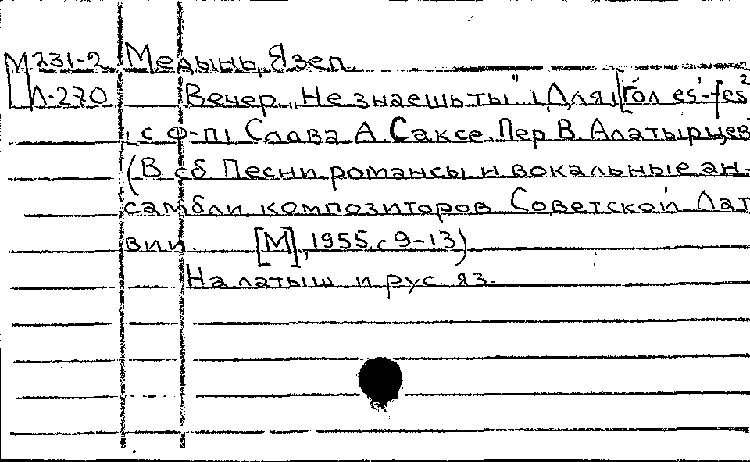 М231-2 Медынь, Язеп.
Л-270 Вечер „Не знаешь ты" (Для [гол es'-fes²
с ф-п) Слова А Саксе. Пер В. Алатырцев
(В сб Песни романсы и вокальные ан-
самбли композиторов Советской Лат
вии [М], 1955, с 9-13)
На латыш и рус яз.